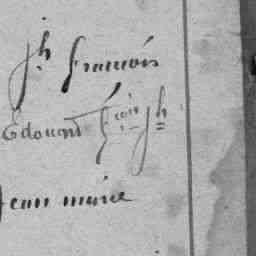 Jh françois
Edouard frçois Jh
Jean marie